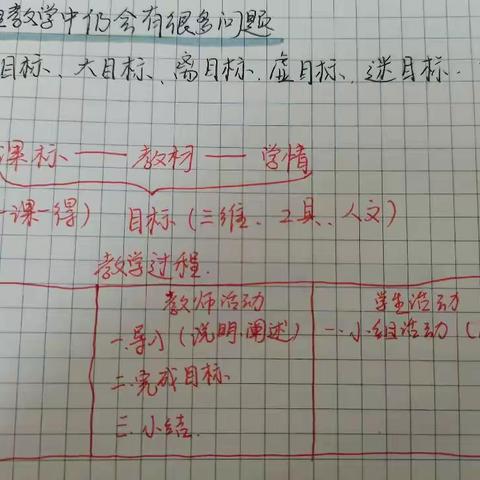 教学中仍会有很多问题
目标、大目标、离目标、虚目标、迷目标.
课标——教材——学情
一课一得) 目标(三维、工具、人文)
教学过程.
教师活动 学生活动
一.导入(说明.阐述) 一.小组活动(
二.完成目标
三.小结.